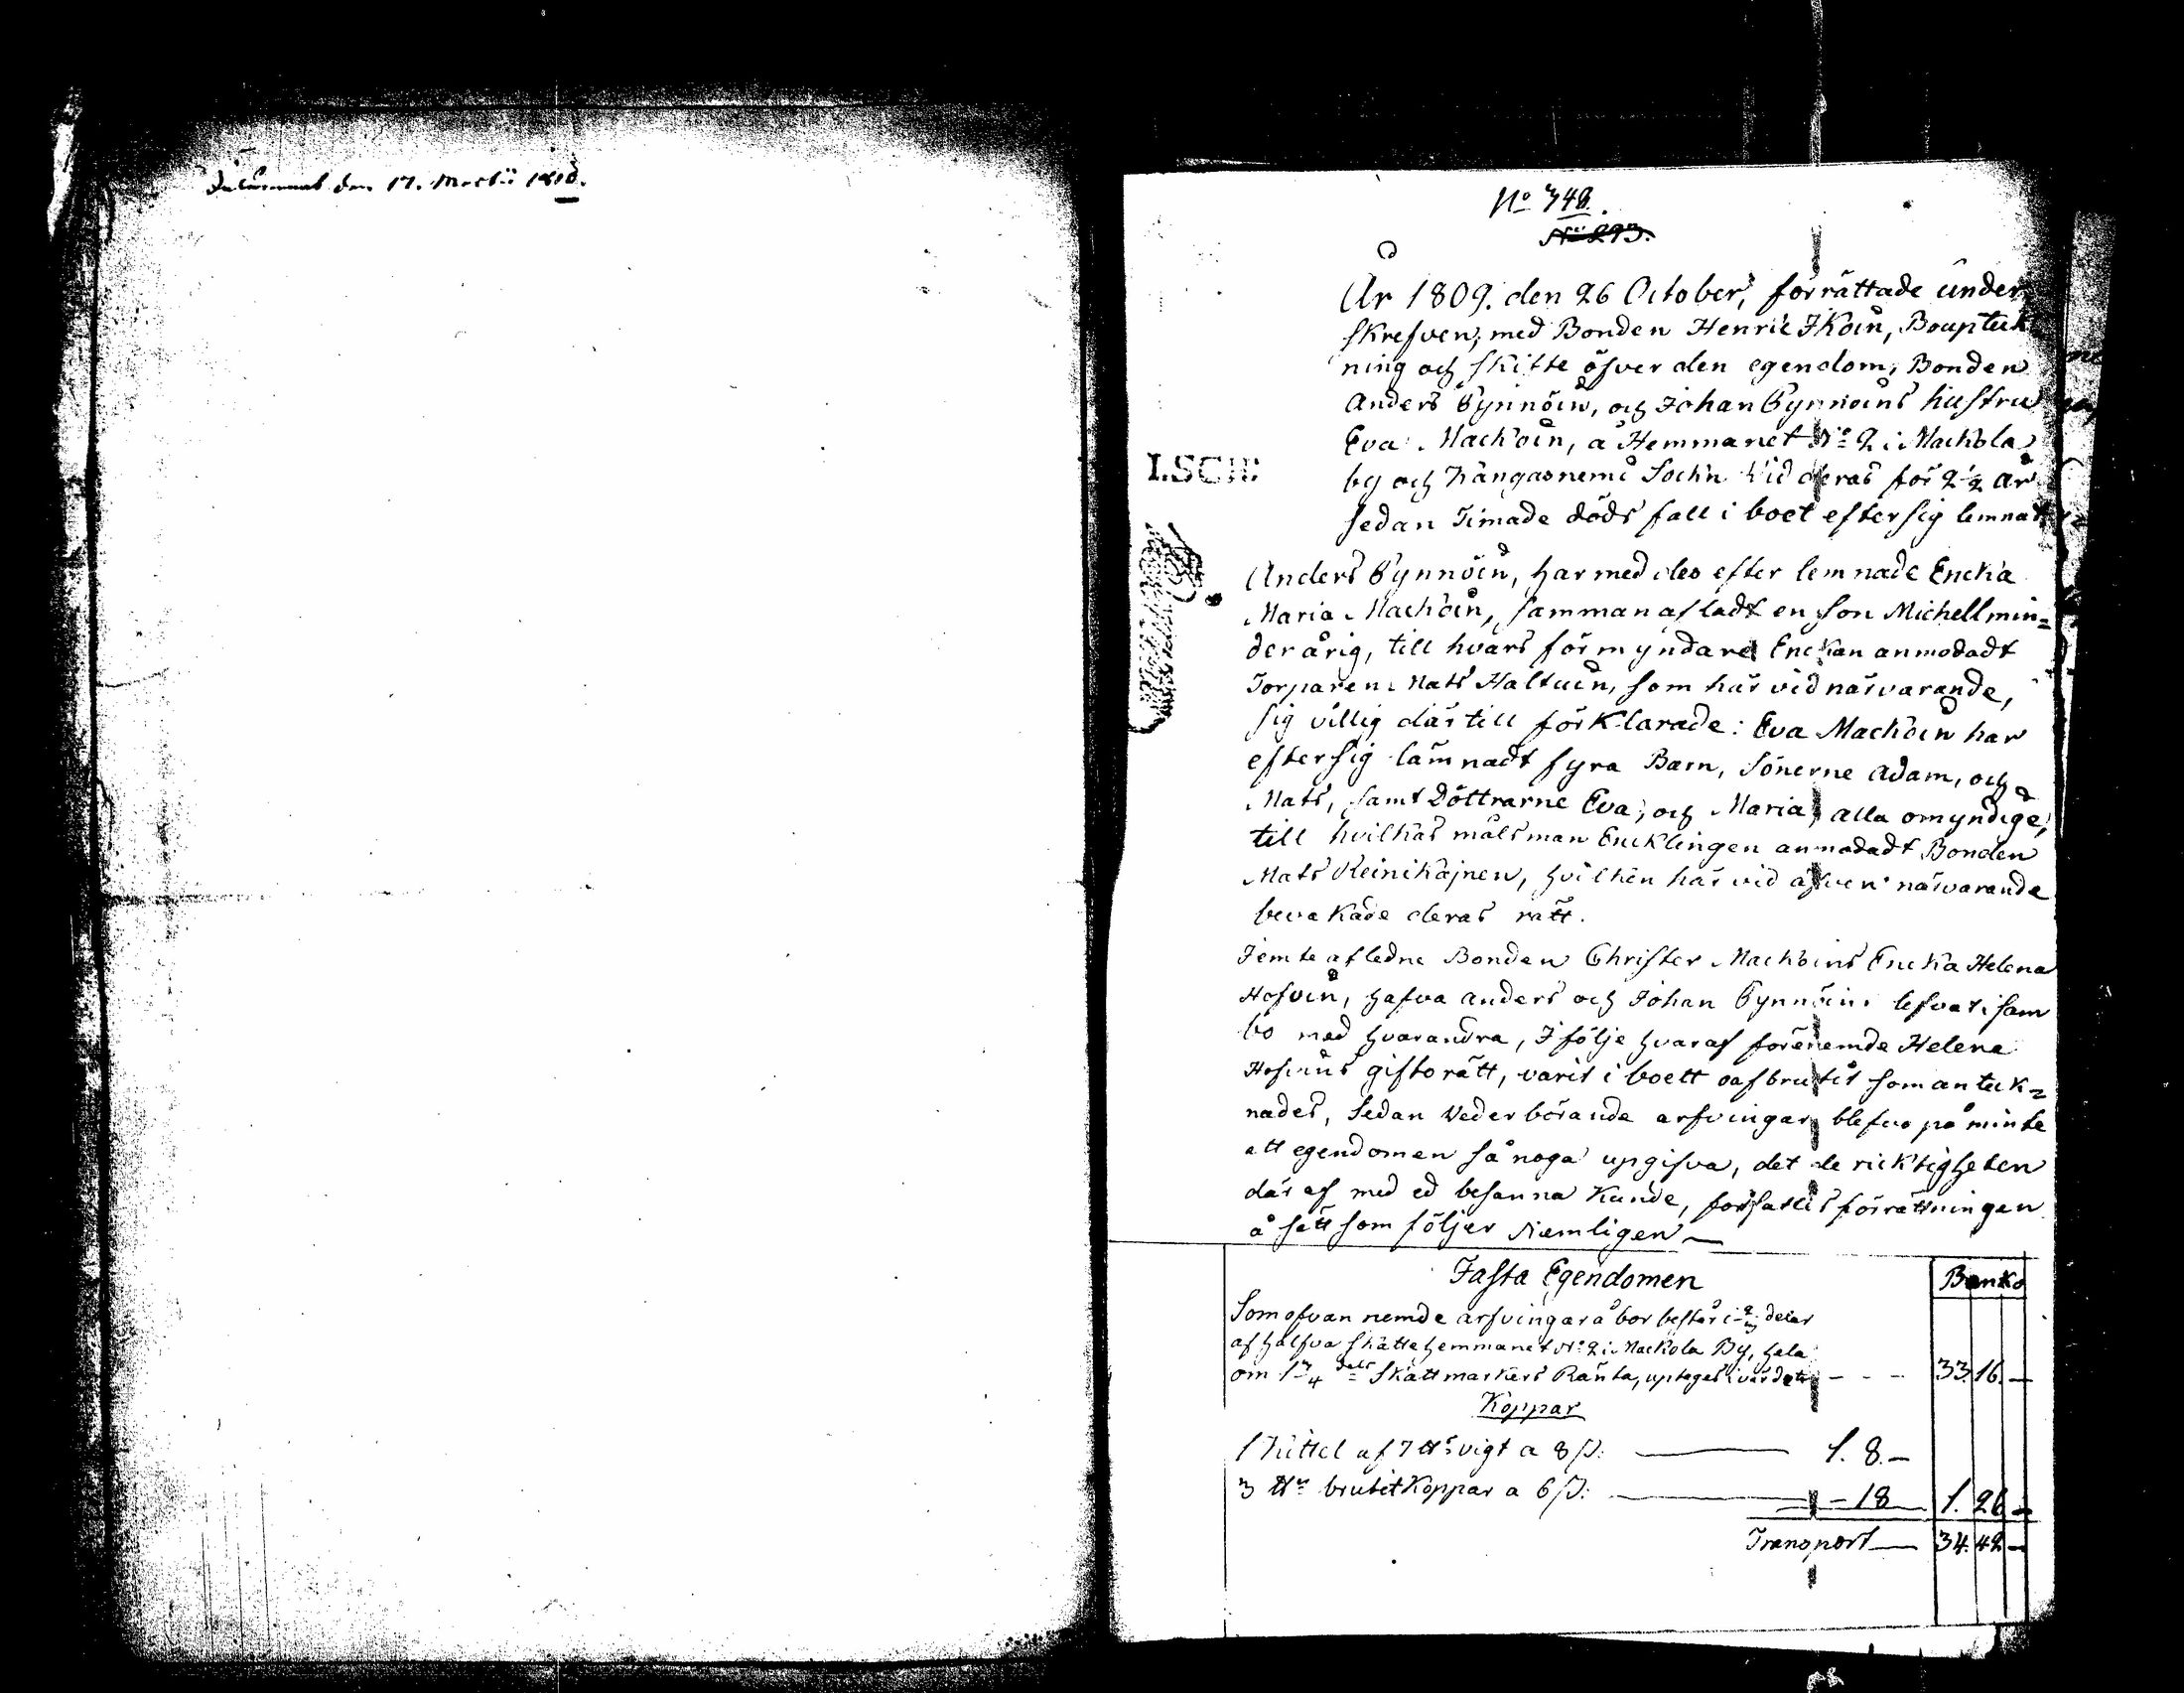 den 17. Martii 1810.
No 348.
No 293.
År 1809. den 26 October, förrättade under
skrefven, med Bonden Henric Ikoin, Bouptek
ning och skifte öfver den egendom, Bonden
Anders Pynnöin, och Johan Pynnöins hustru
Eva Machöin, å Hemmanet No 2 i Machola
by och Kangasnemi Sochn vid deras för 2½ år
sedan Timade döds fall i boet efter sig lemnat
I.SCHI:
Anders Pynnöin, har med des efter lemnade Encka
Maria Machöin, samman afladt en son Michell min=
der årig, till hvars förmyndare Enckan anmodadt
Torparen Mats Haltuin, som här vid närvarande,
sig villig där till förklarade: Eva Machöin har
efter sig lämnadt fyra Barn, Sönerne Adam, och
Mats, samt Döttrarne Eva, och Maria, alla omyndige,
till hvilkas målsman Encklingen anmodadt Bonden
Mats Reinikajnen, hvilken här vid äfven närvarande
bevakade deras rätt.
Jemte afledne Bonden Christer Machöins Encka Helena
Hofvin, hafva Anders och Johan Pynnöin lefvat i sam
bo med hvarandra, I följe hvaraf förenemde Helena
Hofvins giftorätt, varit i boett oafbrutit som anteck=
nades, Sedan Vederbörande arfvingar blefvo påminte
att egendomen så noga upgifva, det de ricktigheten
där af med ed besanna kunde, författes förrättningen
å sätt som följer Nemligen
Fasta Egendomen
Banko
Som ofvan nemde arfvingar å bor består i delar
af halfva skatte hemmanet No 2 i Machola By, hela
om 1¾ dels Skattmarkers Ränta, uptages i värdet - - - 33.16.—
Koppar
1 Kittel af 7 ℔s vigt a 8 ß: — 1. 8.—
3 ℔r brutit Koppar a 6 ß: — -18 1. 26 —
Transport — 34.42 —